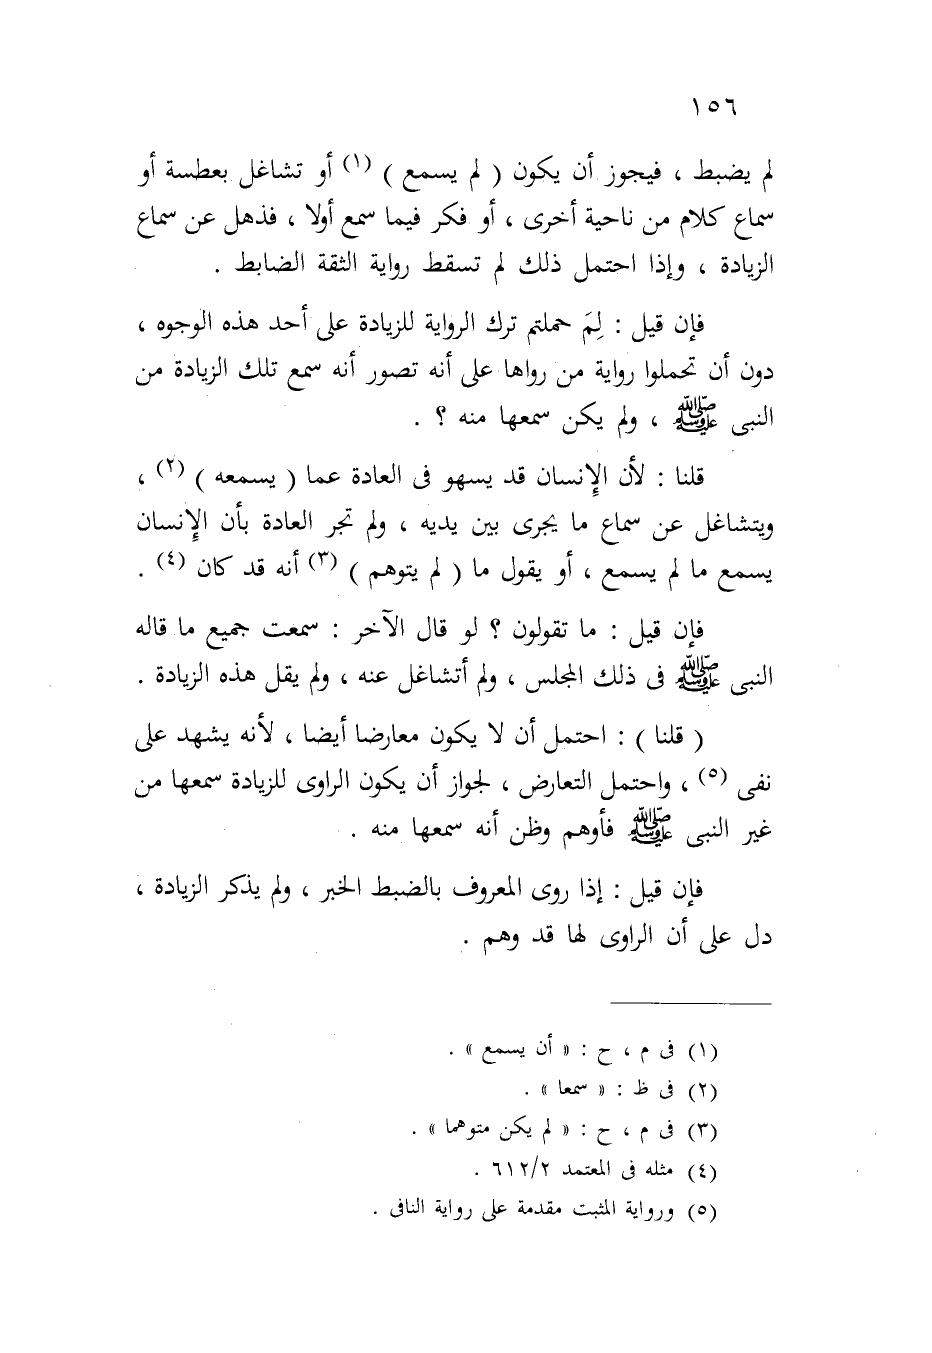 ١٥٦
لم يضبط ، فيجوز أن يكون ( لم يسمع ) (١) أو تشاغل بعطسة أو
سماع كلام من ناحية أخرى ، أو فكر فيما سمع أولا ، فذهل عن سماع
الزيادة ، وإذا احتمل ذلك لم تسقط رواية الثقة الضابط .
فإن قيل : لِمَ حملتم ترك الرواية للزيادة على أحد هذه الوجوه ،
دون أن تحملوا رواية من رواها على أنه تصور أنه سمع تلك الزيادة من
النبى ﷺ ، ولم يكن سمعها منه ؟ .
قلنا : لأن الإنسان قد يسهو فى العادة عما ( يسمعه ) (٢) ،
ويتشاغل عن سماع ما يجرى بين يديه ، ولم تجر العادة بأن الإنسان
يسمع ما لم يسمع ، أو يقول ما ( لم يتوهم ) (٣) أنه قد كان (٤) .
فإن قيل : ما تقولون ؟ لو قال الآخر : سمعت جميع ما قاله
النبى ﷺ فى ذلك المجلس ، ولم أتشاغل عنه ، ولم يقل هذه الزيادة .
( قلنا ) : احتمل أن لا يكون معارضا أيضا ، لأنه يشهد على
نفى (٥) ، واحتمل التعارض ، لجواز أن يكون الراوى للزيادة سمعها من
غير النبى ﷺ فأوهم وظن أنه سمعها منه .
فإن قيل : إذا روى المعروف بالضبط الخبر ، ولم يذكر الزيادة ،
دل على أن الراوى لها قد وهم .
(١) فى م ، ح : « أن يسمع » .
(٢) فى ظ : « سمعا » .
(٣) فى م ، ح : « لم يكن متوهما » .
(٤) مثله فى المعتمد ٦١٢/٢ .
(٥) ورواية المثبت مقدمة على رواية النافى .